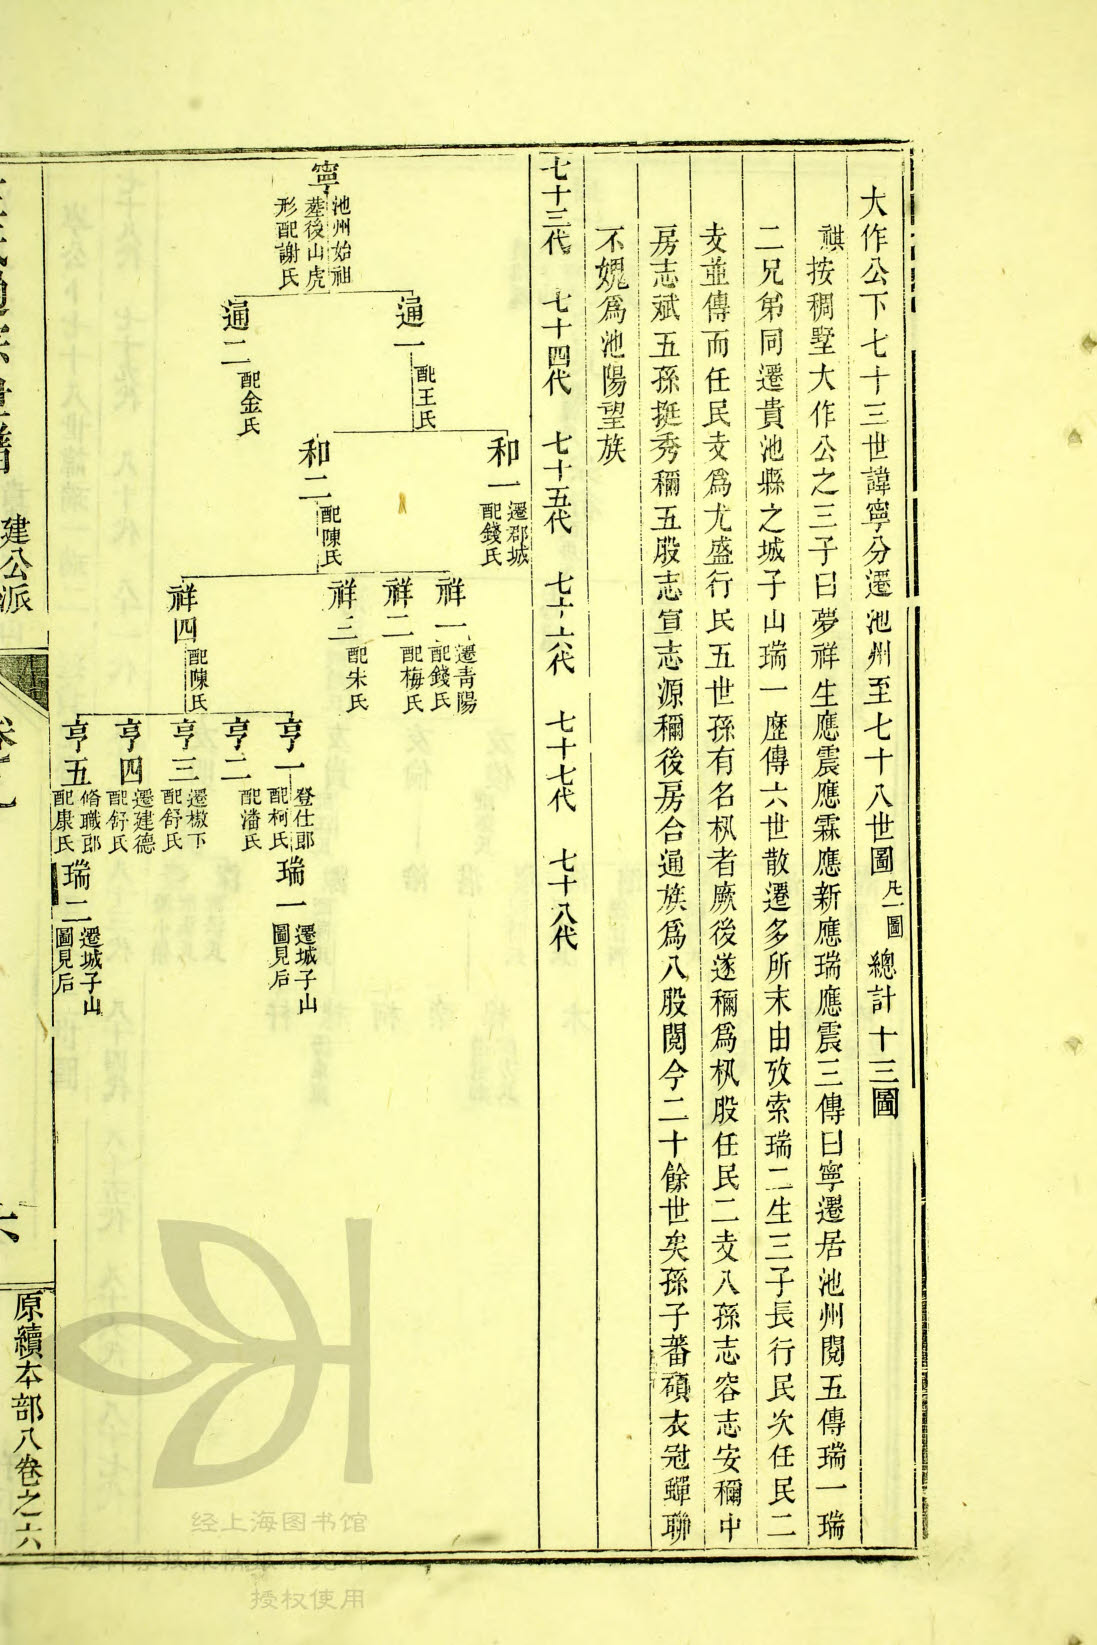 大作公下七十三世諱寧分遷池州至七十八世圖凡一圖總計十三圖
祺按稠墅大作公之三子曰夢祥生應震應霖應新應瑞應震三傳曰寧遷居池州閱五傳瑞一瑞
二兄弟同遷貴池縣之城子山瑞一歷傳六世散遷多所末由攷索瑞二生三子長行民次任民二
支並傳而任民支為尤盛行民五世孫有名枫者厥後遂稱為枫股任民二支八孫志容志安稱中
房志斌五孫挺秀稱五股志宣志源稱後房合通族為八股閱今二十餘世矣孫子蕃碩衣冠蟬聯
不媿為池陽望族
七十三代 七十四代 七十五代 七十六代 七十七代 七十八代
寧 池州始祖
塟後山虎
形配謝氏
通一 配王氏
通二 配金氏
和一 遷郡城
配錢氏
和二 配陳氏
祥一 遷青陽
配錢氏
祥二 配梅氏
祥三 配朱氏
祥四 配陳氏
亨一 登仕郎
配柯氏
亨二 配潘氏
亨三 遷樕下
配舒氏
亨四 遷建德
配舒氏
亨五 脩職郎
配康氏
瑞一 遷城子山
圖見后
瑞二 遷城子山
圖見后
建公派
原續本部八卷之六
经上海图书馆
授权使用